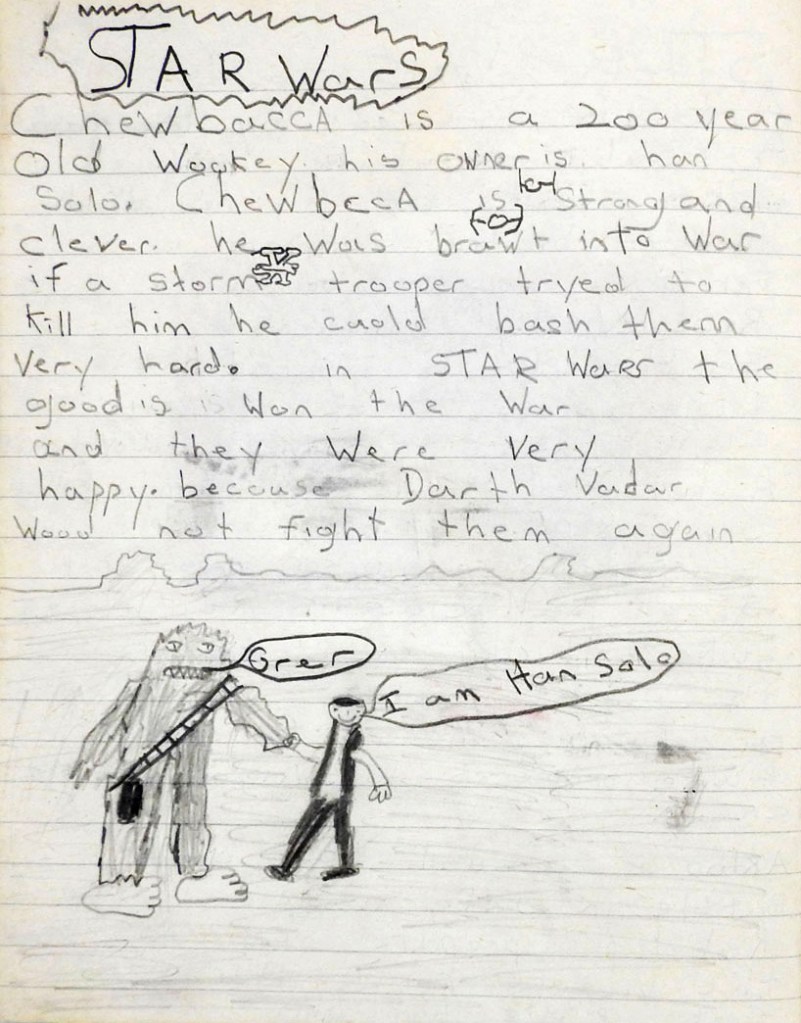 STAR Wars
ChewbaccA is a 200 year
Old Wookey. his owner is han
Solo. ChewbccA is Strong and
clever. he Was brawt into War
if a storm trooper tryed to
kill him he cuold bash them
very hard. in STAR WaRs the
goodis is Won the War
and they Were Very
happy. because Darth Vadar
Wood not fight them again
Grer
I am Han Solo